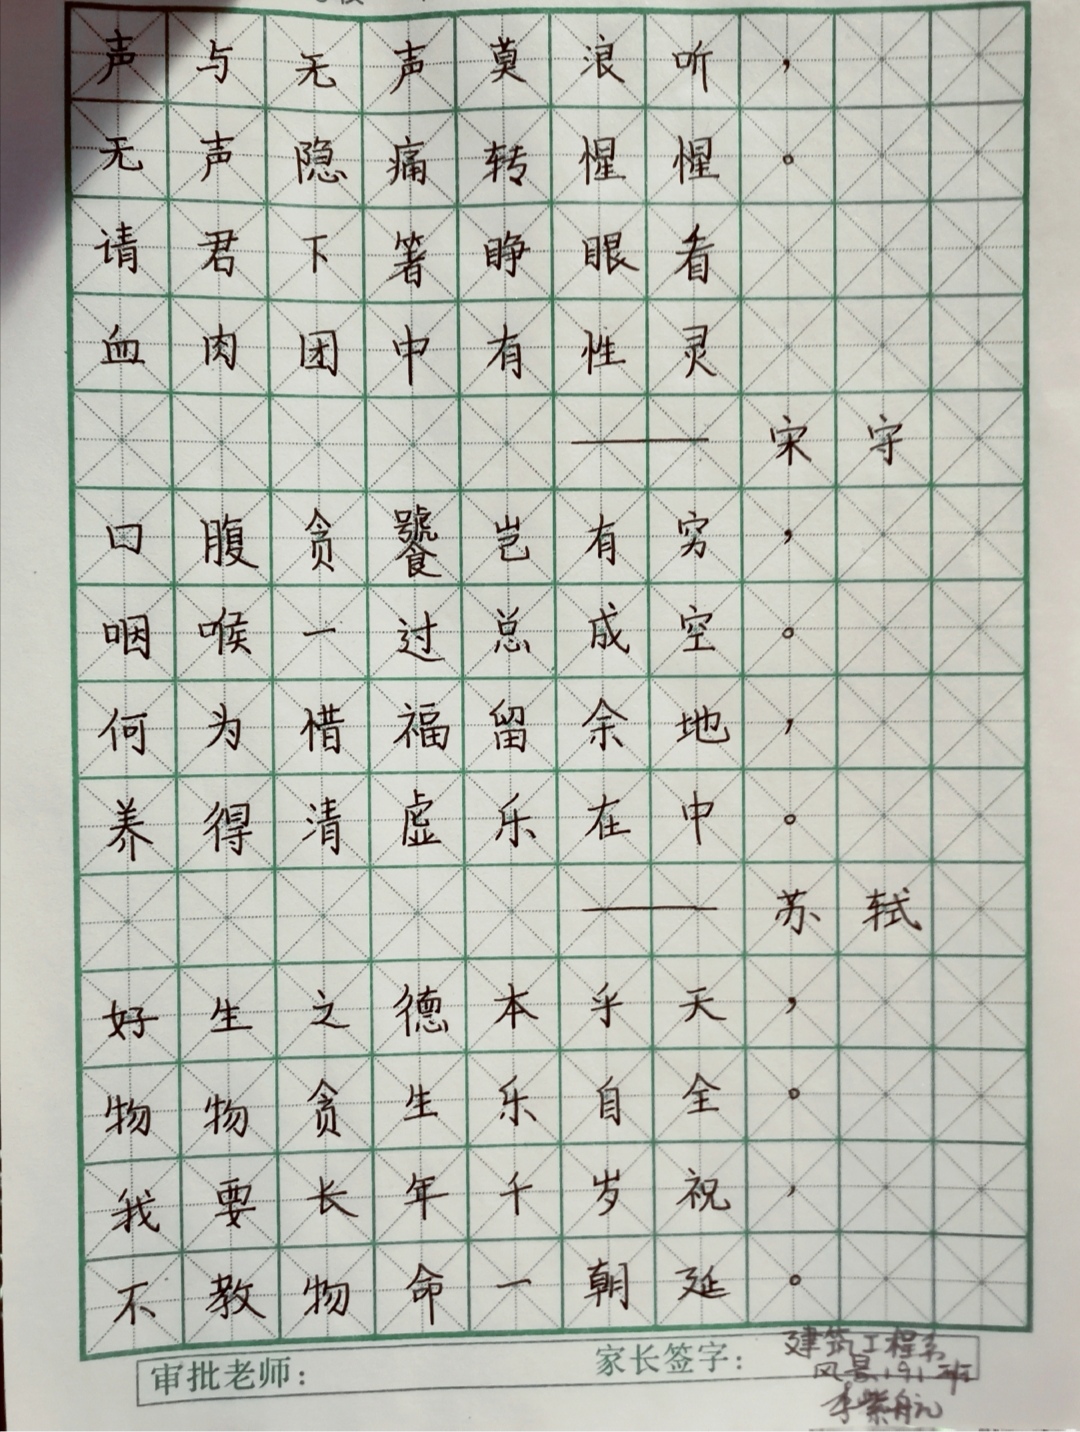 声与无声莫浪听，
无声隐痛转惺惺。
请君下箸睁眼看
血肉团中有性灵
——宋守
口腹贪饕岂有穷，
咽喉一过总成空。
何为惜福留余地，
养得清虚乐在中。
——苏轼
好生之德本乎天，
物物贪生乐自全。
我要长年千岁祝，
不教物命一朝延。
审批老师：
家长签字：
建筑工程系
风景191班
李紫航